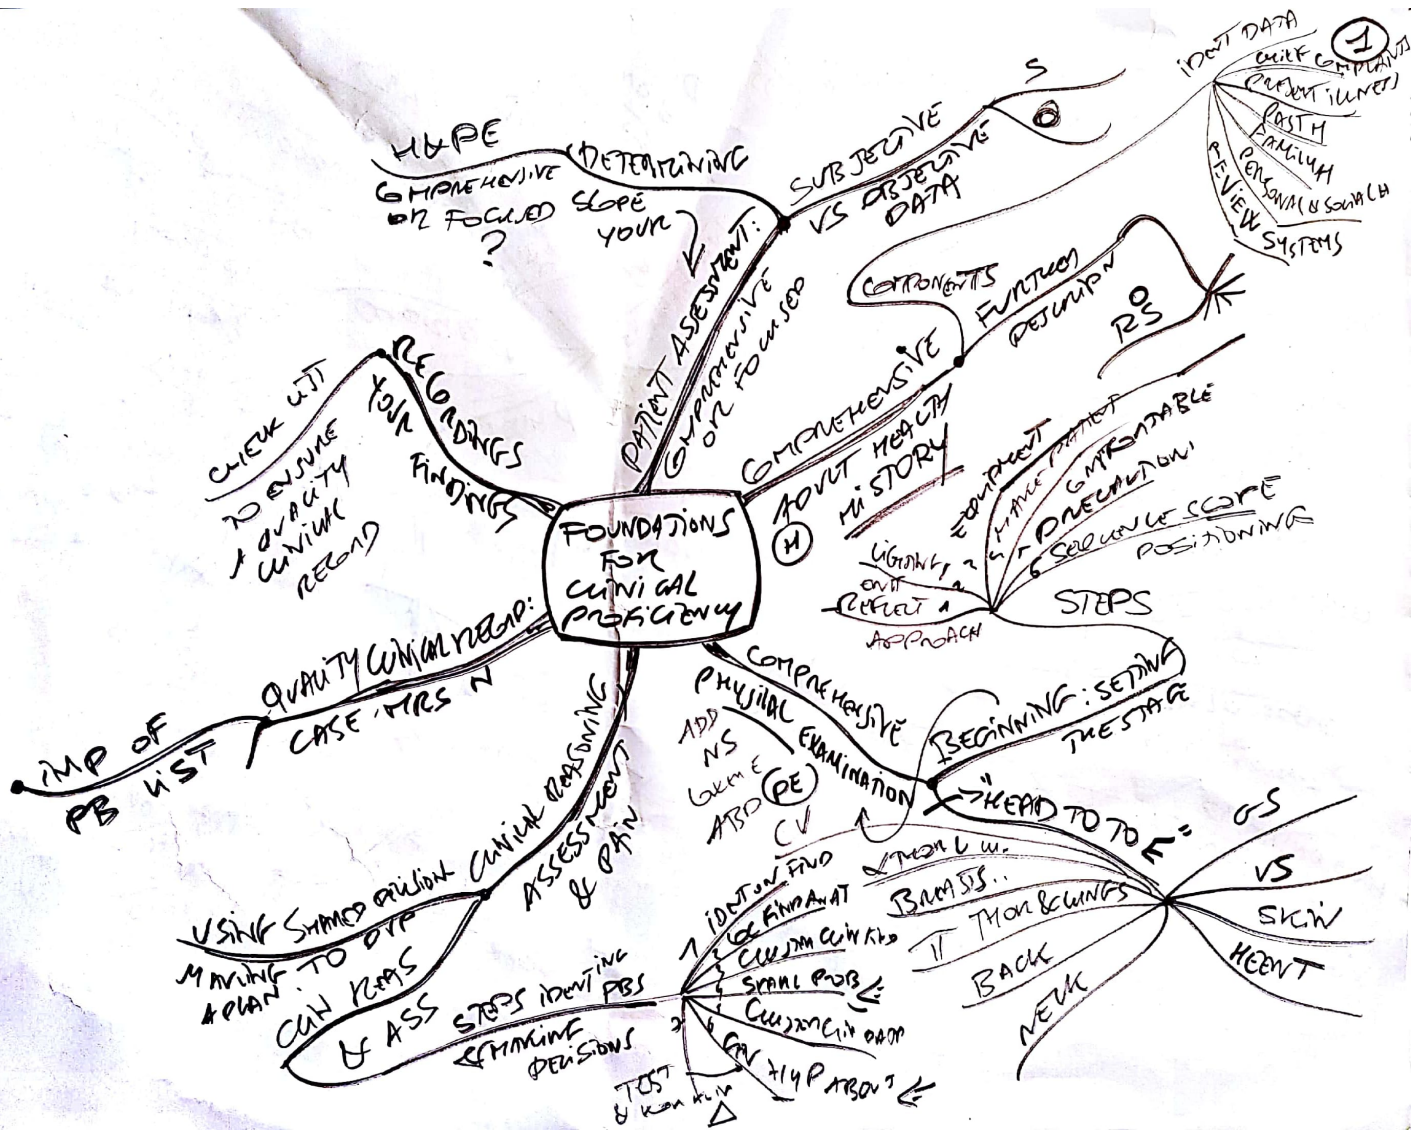 FOUNDATIONS
FOR
CLINICAL
PROFICIENCY
PATIENT ASSESSMENT:
COMPREHENSIVE
OR FOCUSED
DETERMINING
YOUR
SCOPE
H&PE
COMPREHENSIVE
OR FOCUSED
?
SUBJECTIVE
VS OBJECTIVE
DATA
S
O
1
COMPREHENSIVE
ADULT HEALTH
HISTORY
H
COMPONENTS
IDENT DATA
CHIEF COMPLAINTS
PRESENT ILLNESS
PAST H
FAMILY H
PERSONAL & SOCIAL H
REVIEW
SYSTEMS
FURTHER
DESCRIPTION
ROS
COMPREHENSIVE
PHYSICAL
EXAMINATION
PE
BEGINNING: SETTING
THE STAGE
STEPS
APPROACH
REFLECT 1
LIGHTING,
2
3
EQUIPMENT
4 MAKE PATIENT
COMFORTABLE
5 PRECAUTION
6 SEQUENCE SCOPE
POSITIONING
"HEAD TO TOE"
GS
VS
SKIN
HEENT
NECK
BACK
THOR & LUNGS
BREASTS..
CV
ABD
NS
ADD
CLINICAL REASONING
ASSESSMENT
& PAIN
USING SHARED DECISION
MAKING TO DVP
A PLAN
CLIN REAS
& ASS
STEPS IDENTING PBS
& MAKING
DECISIONS
1
IDENT UN FIND
LOC FIND ANAT
CLUSTER CLIN FIND
SEARCH PROB
CLUSTER CLIN DATA
6
GEN HYP ABOUT
7
TEST
QUALITY CLINICAL RECORD:
CASE MRS N
IMP OF
PB LIST
RECORDINGS
YOUR
FINDINGS
CHECK LIST
TO ENSURE
A QUALITY
CLINICAL
RECORD